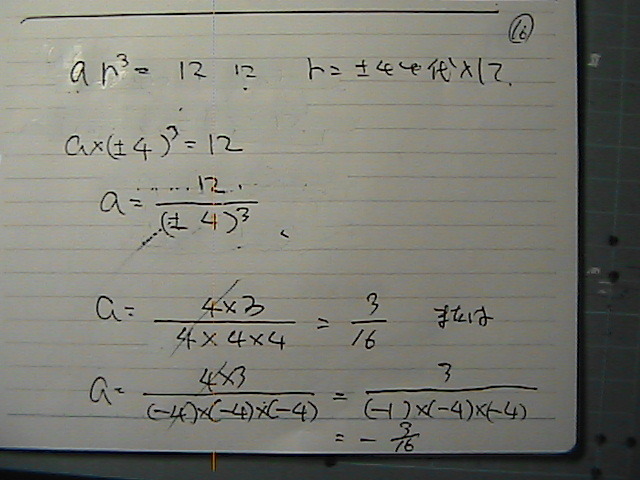 ⑯
ar³ = 12 に r = ±4を代入して.
a×(±4)³ = 12
a = 12/(±4)³
a = 4×3/4×4×4 = 3/16 または
a = 4×3/(-4)×(-4)×(-4) = 3/(-1)×(-4)×(-4)
= -3/16